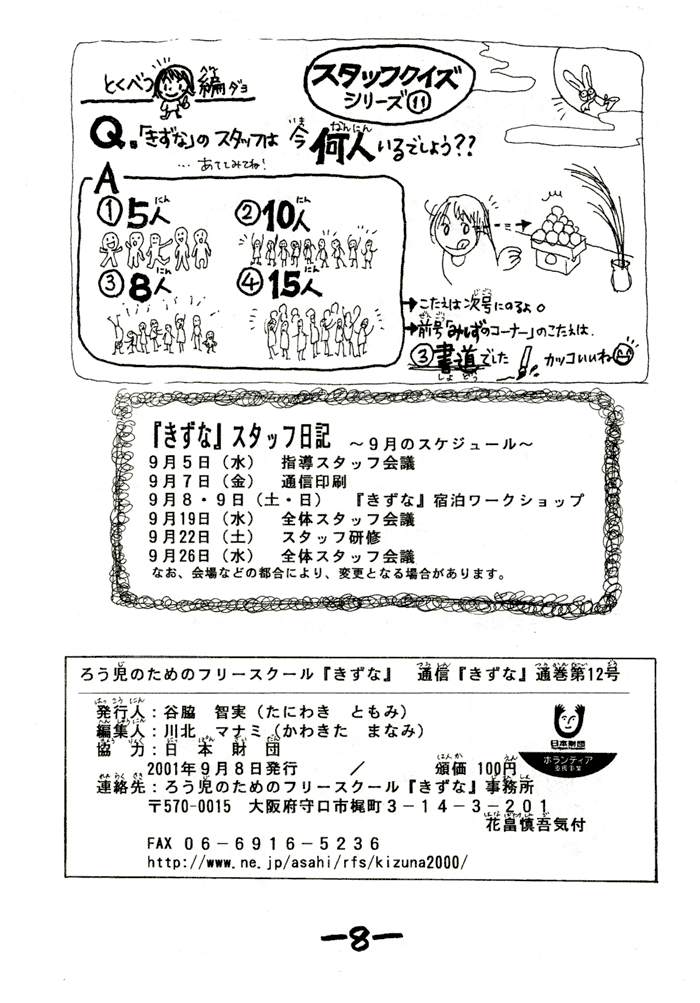 とくべつ編ダヨ
スタッフクイズ
シリーズ⑪
Q.「きずな」のスタッフは今何人いるでしょう??
…あててみてね!
A
①5人 ②10人
③8人 ④15人
→こたえは次号にのるよ。
→前号「みしずのコーナー」のこたえは.
③書道でした カッコいいね
『きずな』スタッフ日記 ～9月のスケジュール～
9月5日(水) 指導スタッフ会議
9月7日(金) 通信印刷
9月8・9日(土・日) 『きずな』宿泊ワークショップ
9月19日(水) 全体スタッフ会議
9月22日(土) スタッフ研修
9月26日(水) 全体スタッフ会議
なお、会場などの都合により、変更となる場合があります。
ろう児のためのフリースクール『きずな』 通信『きずな』通巻第12号
発行人:谷脇 智実(たにわき ともみ)
編集人:川北 マナミ(かわきた まなみ)
協力:日本財団
日本財団
ボランティア
支援事業
2001年9月8日発行 / 頒価 100円
連絡先:ろう児のためのフリースクール『きずな』事務所
〒570-0015 大阪府守口市梶町3-14-3-201
花畠慎吾気付
FAX 06-6916-5236
http://www.ne.jp/asahi/rfs/kizuna2000/
-8-